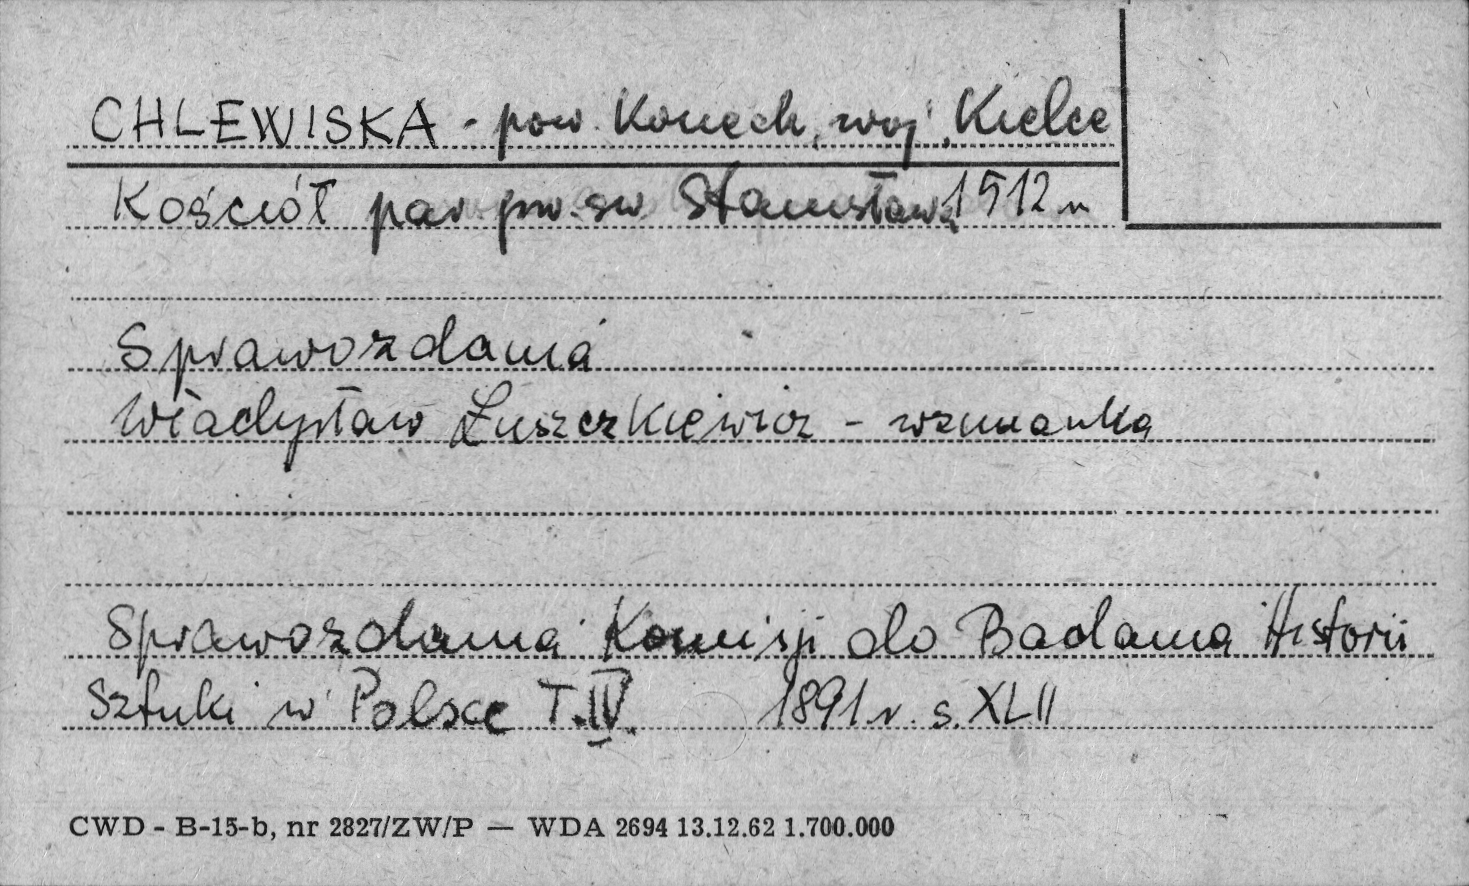 CHLEWISKA - pow. Końskie, woj. Kielce
Kościół par. pw. św. Stanisława 1512 r.
Sprawozdania
Władysław Łuszczkiewicz - wzmianka
Sprawozdania Komisji do Badania Historii
Sztuki w Polsce T.IV. 1891 r. s. XLII
CWD - B-15-b, nr 2827/ZW/P — WDA 2694 13.12.62 1.700.000